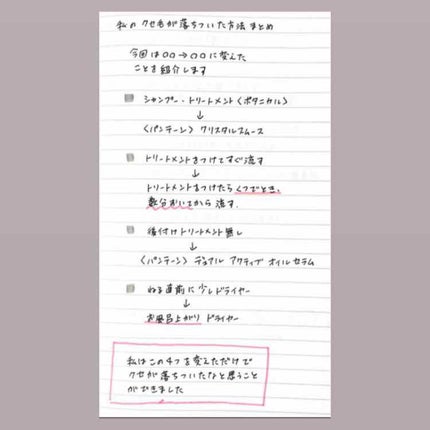 私のクセ毛が落ちついた方法まとめ
今回は○○→○○に変えた
ことを紹介します
シャンプー・トリートメント〈ボタニカル〉
↓
〈パンテーン〉クリスタルスムース
トリートメントをつけてすぐ流す
↓
トリートメントをつけたらくつでとき、
数分おいてから流す。
後付けトリートメント無し
↓
〈パンテーン〉デュアル アクティブ オイルセラム
ねる直前に少しドライヤー
↓
お風呂上がりドライヤー
私はこの4つを変えただけで
クセが落ちついたなと思うこと
ができました